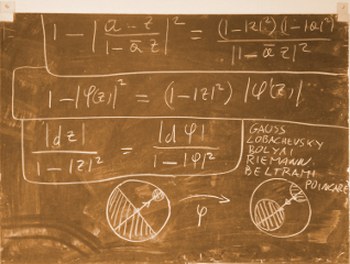 1 - |a - z / 1 - āz|² = (1-|z|²)(1-|a|²) / |1 - āz|²
1 - |φ(z)|² = (1-|z|²) |φ'(z)|
|dz| / 1-|z|² = |dφ| / 1-|φ|²
GAUSS
LOBACHEVSKY
BOLYAI
RIEMANN
BELTRAMI
POINCARÉ
φ